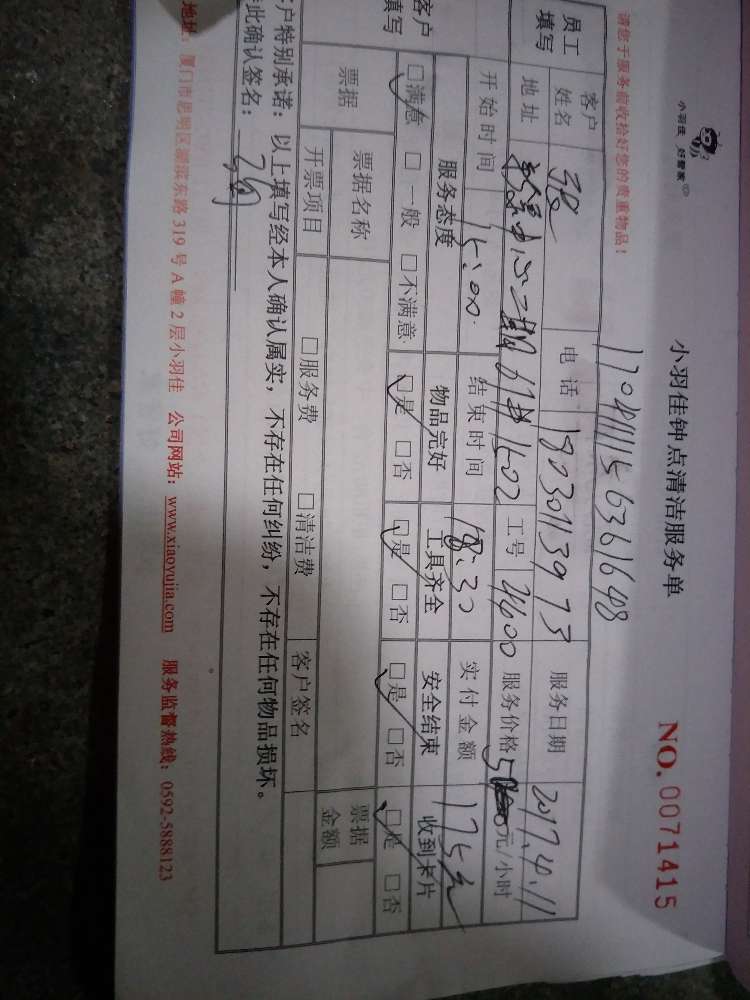 小羽佳 好管家
小羽佳钟点清洁服务单
NO. 0071415
请您于服务前收拾好您的贵重物品！
员工填写
客户姓名 电话 18030113973 服务日期 2017.4.11
地址 中心二期 61# 1502 工号 服务价格 元/小时
开始时间 15:00 结束时间 18:30 实付金额 175元
客户填写
服务态度 物品完好 工具齐全 安全结束 收到卡片
☑满意 □一般 □不满意 ☑是 □否 ☑是 □否 ☑是 □否 ☑是 □否
票据 票据名称 票据金额
开票项目 □服务费 □清洁费 客户签名
客户特别承诺：以上填写经本人确认属实，不存在任何纠纷，不存在任何物品损坏。
此确认签名：
地址：厦门市思明区湖滨东路 319 号 A 幢 2 层小羽佳 公司网站：www.xiaoyujia.com 服务监督热线：0592-5888123